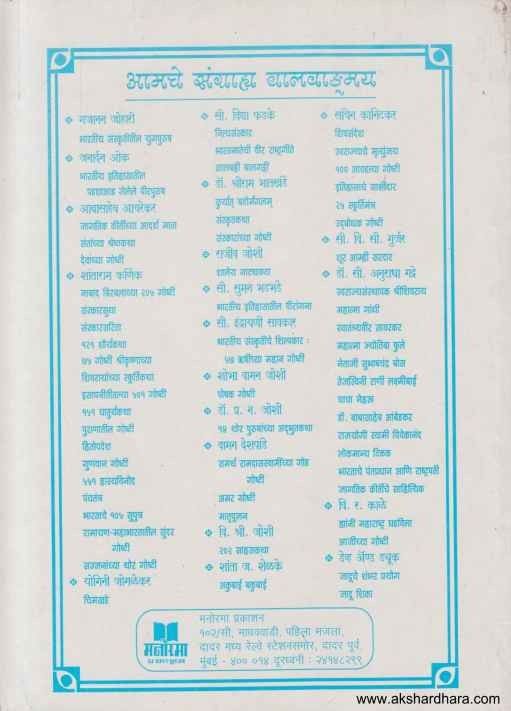 आमचे संग्राह्य बालवाङ्मय
❖ गजानन जोहरी
भारतीय संस्कृतीतील युगपुरुष
❖ जनार्दन ओक
भारतीय इतिहासातील
पडद्याआड गेलेले वीरपुरुष
❖ आबासाहेब आचरेकर
जागतिक कीर्तीच्या आदर्श माता
संतांच्या श्रेष्ठकथा
देवांच्या गोष्टी
❖ शांताराम कर्णिक
नाबाद बिरबलाच्या २०५ गोष्टी
संस्कारसुधा
संस्कारसरिता
१२१ शौर्यकथा
७५ गोष्टी श्रीकृष्णाच्या
शिवरायांच्या स्फूर्तिकथा
इसापनीतीतल्या ५०१ गोष्टी
१५१ चातुर्यकथा
पुराणातील गोष्टी
हितोपदेश
गुणवान गोष्टी
५५१ हास्यविनोद
पंचतंत्र
भारताचे १०५ सुपुत्र
रामायण-महाभारतातील सुंदर
गोष्टी
सज्जनांच्या थोर गोष्टी
❖ योगिनी जोगळेकर
चिमखडे
❖ सौ. विद्या फडके
नित्यसंस्कार
भारतमातेची वीर राष्ट्रगीते
आलबही बालगाई
❖ डॉ. श्रीराम भालखंडे
कुर्यात् बटोर्मंगलम्
संस्कृतकथा
संस्कारांच्या गोष्टी
❖ राजीव जोशी
शालेय नाट्यछटा
❖ सौ. सुमन भडभडे
भारतीय इतिहासातील वीरांगना
❖ सौ. इंद्रायणी सावकार
भारतीय संस्कृतीचे शिल्पकार :
५७ ऋषींच्या महान गोष्टी
❖ शोभा वामन जोशी
पोषक गोष्टी
❖ डॉ. प्र. न. जोशी
१५ थोर पुरुषांच्या अद्भुतकथा
❖ वामन देशपांडे
समर्थ रामदासस्वामींच्या गोड
गोष्टी
अमर गोष्टी
मातृपूजन
❖ वि. श्री. जोशी
२०२ साहसकथा
❖ शांता ज. शेळके
अकुबाई बकुबाई
❖ सचिन कानिटकर
शिवसंदेश
स्वराज्याचे मृत्युंजय
१०० आवडत्या गोष्टी
इतिहासाचे साक्षीदार
२५ स्फूर्तिमंत्र
उद्बोधक गोष्टी
❖ सौ. वि. सी. गुर्जर
शूर आम्ही सरदार
❖ डॉ. सौ. अनुराधा गद्रे
स्वराज्यसंस्थापक श्रीशिवराय
महात्मा गांधी
स्वातंत्र्यवीर सावरकर
महात्मा ज्योतिबा फुले
नेताजी सुभाषचंद्र बोस
तेजस्विनी राणी लक्ष्मीबाई
चाचा नेहरू
डॉ. बाबासाहेब आंबेडकर
राजयोगी स्वामी विवेकानंद
लोकमान्य टिळक
भारताचे पंतप्रधान आणि राष्ट्रपती
जागतिक कीर्तीचे साहित्यिक
❖ वि. र. काळे
ह्यांनी महाराष्ट्र घडविला
आजीच्या गोष्टी
❖ डेव्ह अ‍ॅण्ड ड्यूक
जादूचे शंभर प्रयोग
जादू शिका
मनोरमा
मनोरमा प्रकाशन
१०२/सी, माधववाडी, पहिला मजला,
दादर मध्य रेल्वे स्टेशनसमोर, दादर पूर्व,
मुंबई - ४०० ०१४ दूरध्वनी : २४१४८२९९
www.akshardhara.com